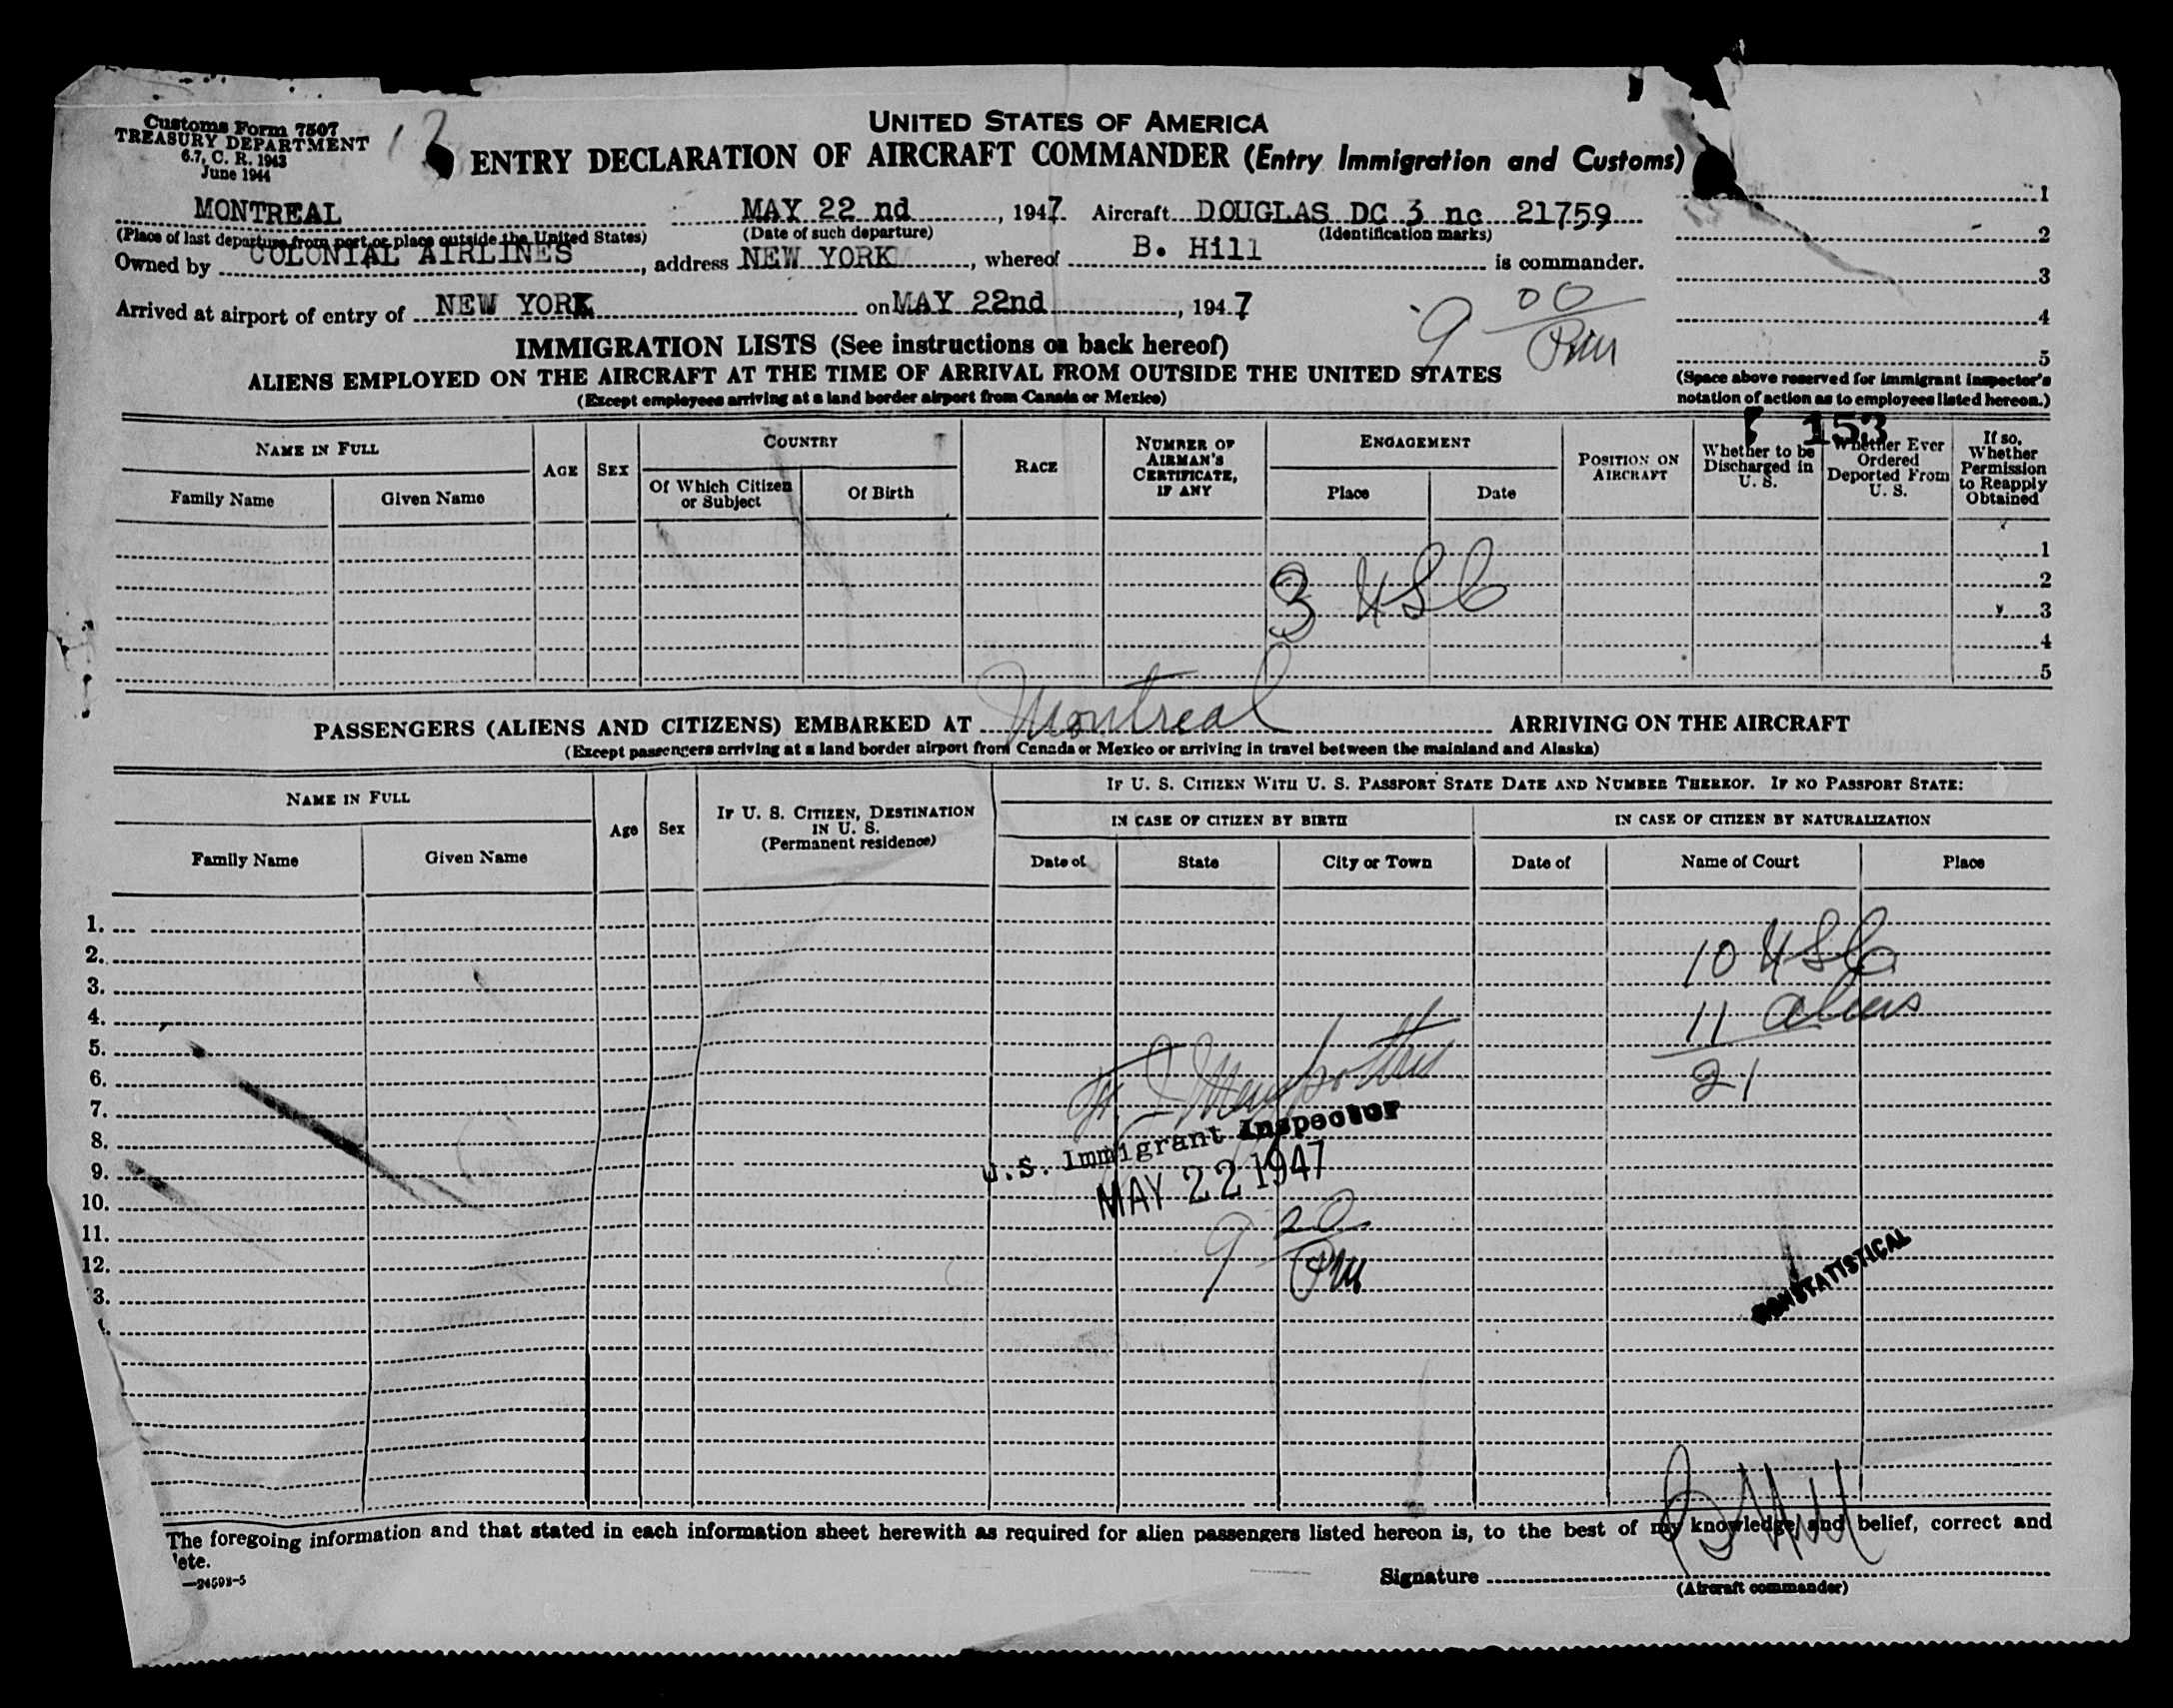 Customs Form 7507
TREASURY DEPARTMENT
6.7, C. R. 1943
June 1944
13
UNITED STATES OF AMERICA
ENTRY DECLARATION OF AIRCRAFT COMMANDER (Entry Immigration and Customs)
MONTREAL MAY 22 nd, 1947. Aircraft DOUGLAS DC 3 nc 21759
(Place of last departure from port or place outside the United States) (Date of such departure) (Identification marks)
Owned by COLONIAL AIRLINES, address NEW YORK, whereof B. Hill is commander.
Arrived at airport of entry of NEW YORK on MAY 22nd, 1947
9 00 Pm
1
2
3
4
5
(Space above reserved for immigrant inspector's
notation of action as to employees listed hereon.)
IMMIGRATION LISTS (See instructions on back hereof)
ALIENS EMPLOYED ON THE AIRCRAFT AT THE TIME OF ARRIVAL FROM OUTSIDE THE UNITED STATES
(Except employees arriving at a land border airport from Canada or Mexico)
153
NAME IN FULL
Family Name
Given Name
AGE
SEX
COUNTRY
Of Which Citizen or Subject
Of Birth
RACE
NUMBER OF AIRMAN'S CERTIFICATE, IF ANY
ENGAGEMENT
Place
Date
POSITION ON AIRCRAFT
Whether to be Discharged in U. S.
Whether Ever Ordered Deported From U. S.
If so, Whether Permission to Reapply Obtained
1
2
3
4
5
3 USC
PASSENGERS (ALIENS AND CITIZENS) EMBARKED AT Montreal ARRIVING ON THE AIRCRAFT
(Except passengers arriving at a land border airport from Canada or Mexico or arriving in travel between the mainland and Alaska)
NAME IN FULL
Family Name
Given Name
Age
Sex
IF U. S. CITIZEN, DESTINATION IN U. S.
(Permanent residence)
IF U. S. CITIZEN WITH U. S. PASSPORT STATE DATE AND NUMBER THEREOF. IF NO PASSPORT STATE:
IN CASE OF CITIZEN BY BIRTH
IN CASE OF CITIZEN BY NATURALIZATION
Date of
State
City or Town
Date of
Name of Court
Place
1.
2.
3.
4.
5.
6.
7.
8.
9.
10.
11.
12.
3.
10 USC
11 aliens
21
U.S. Immigrant Inspector
MAY 22 1947
9 20 Pm
NONSTATISTICAL
The foregoing information and that stated in each information sheet herewith as required for alien passengers listed hereon is, to the best of my knowledge and belief, correct and
lete.
—24593-5
Signature B Hill
(Aircraft commander)